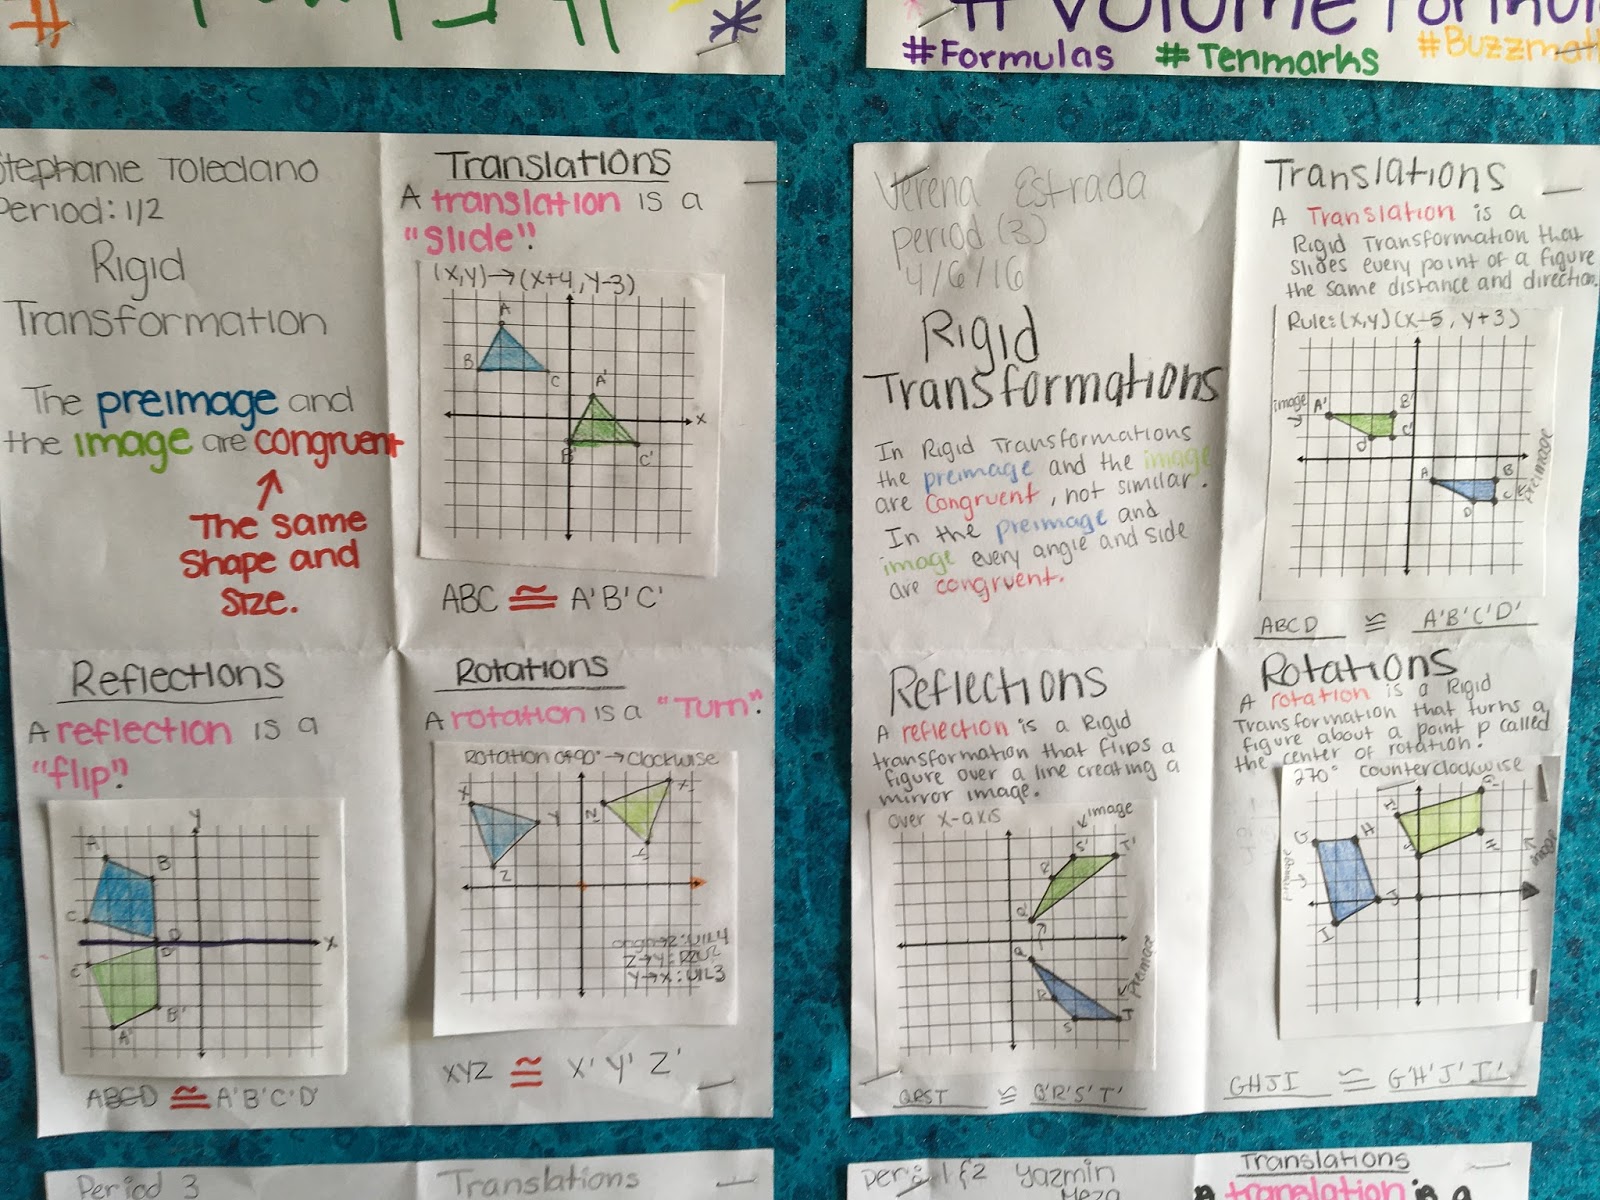 #Formulas #Tenmarks
Stephanie Toledano
Period: 1/2
Rigid
Transformation
The preimage and
the image are congruent
The same
shape and
size.
Translations
A translation is a
"Slide".
(x,y)→(x+4, y-3)
A
B
C
A'
x
B'
C'
ABC ≅ A'B'C'
Reflections
A reflection is a
"flip".
y
A
B
C
D
x
D'
C'
B'
A'
ABCD ≅ A'B'C'D'
Rotations
A rotation is a "Turn".
Rotation of 90° → clockwise
X
Y
Z
Z→Y: R2U2
Y→X: U1L3
XYZ ≅ X'Y'Z'
Verena Estrada
Period (3)
4/6/16
Rigid
Transformations
In Rigid Transformations
the preimage and the image
are congruent, not similar.
In the preimage and
image every angle and side
are congruent.
Translations
A Translation is a
Rigid Transformation that
slides every point of a figure
the same distance and direction.
Rule:(x,y)(x-5, y+3)
image
A'
B'
C'
d'
A
B
C
D
Preimage
ABCD ≅ A'B'C'D'
Reflections
A reflection is a Rigid
transformation that flips a
figure over a line creating a
mirror image.
over x-axis
image
S'
T'
R'
Q'
Q
R
S
T
Preimage
QRST ≅ Q'R'S'T'
Rotations
A rotation is a Rigid
Transformation that turns a
figure about a point p called
the center of rotation.
270° counterclockwise
G
H
J
I
image
GHJI ≅ G'H'J'I'
Period 3
Translations
Period 1&2 Yazmin
Meza
Translations
A translation is a